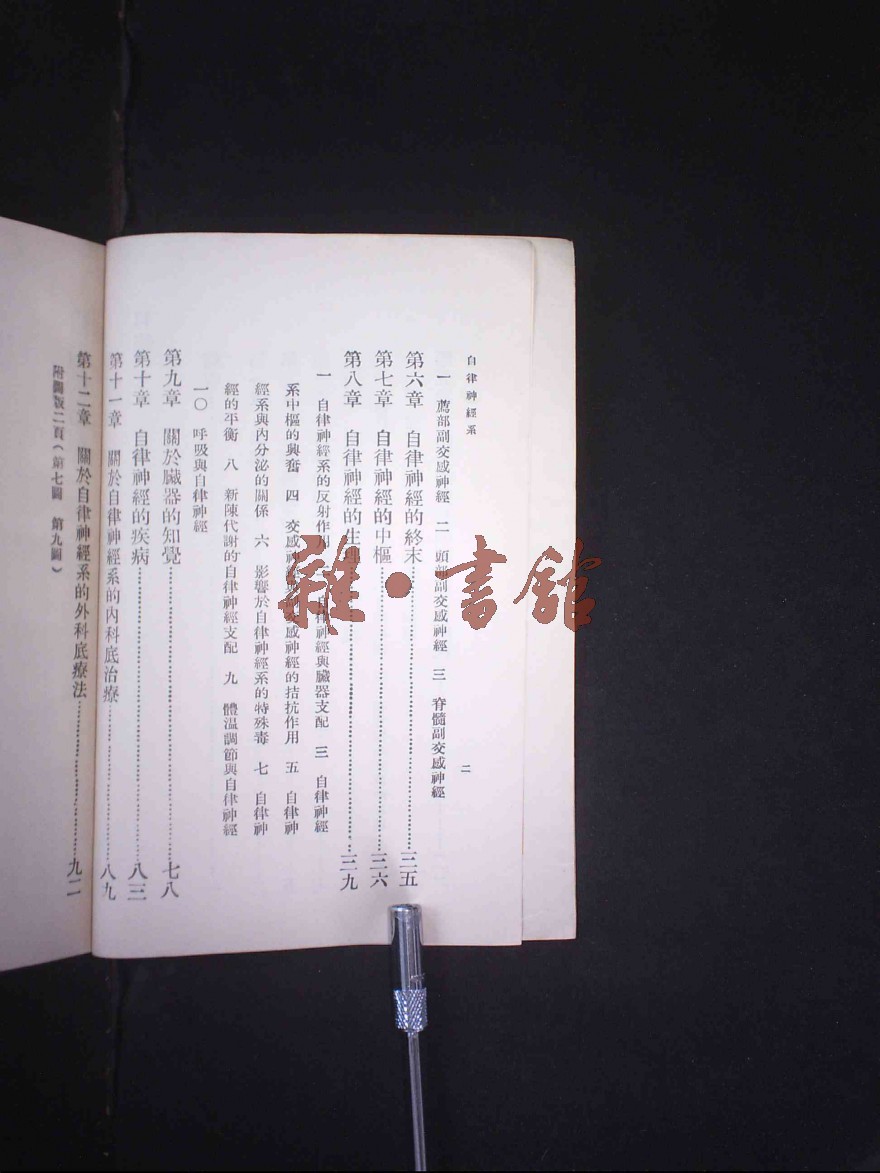 自律神經系
二
一 薦部副交感神經 二 頭部副交感神經 三 脊髓副交感神經
第六章 自律神經的終末 三五
第七章 自律神經的中樞 三六
第八章 自律神經的生理 三九
一 自律神經系的反射作用 二 自律神經與臟器支配 三 自律神經
系中樞的興奮 四 交感神經與副交感神經的拮抗作用 五 自律神
經系與內分泌的關係 六 影響於自律神經系的特殊毒 七 自律神
經的平衡 八 新陳代謝的自律神經支配 九 體温調節與自律神經
一〇 呼吸與自律神經
第九章 關於臟器的知覺 七八
第十章 自律神經的疾病 八三
第十一章 關於自律神經系的內科底治療 八九
第十二章 關於自律神經系的外科底療法 九二
附圖版二頁（第七圖 第九圖）
雜·書館